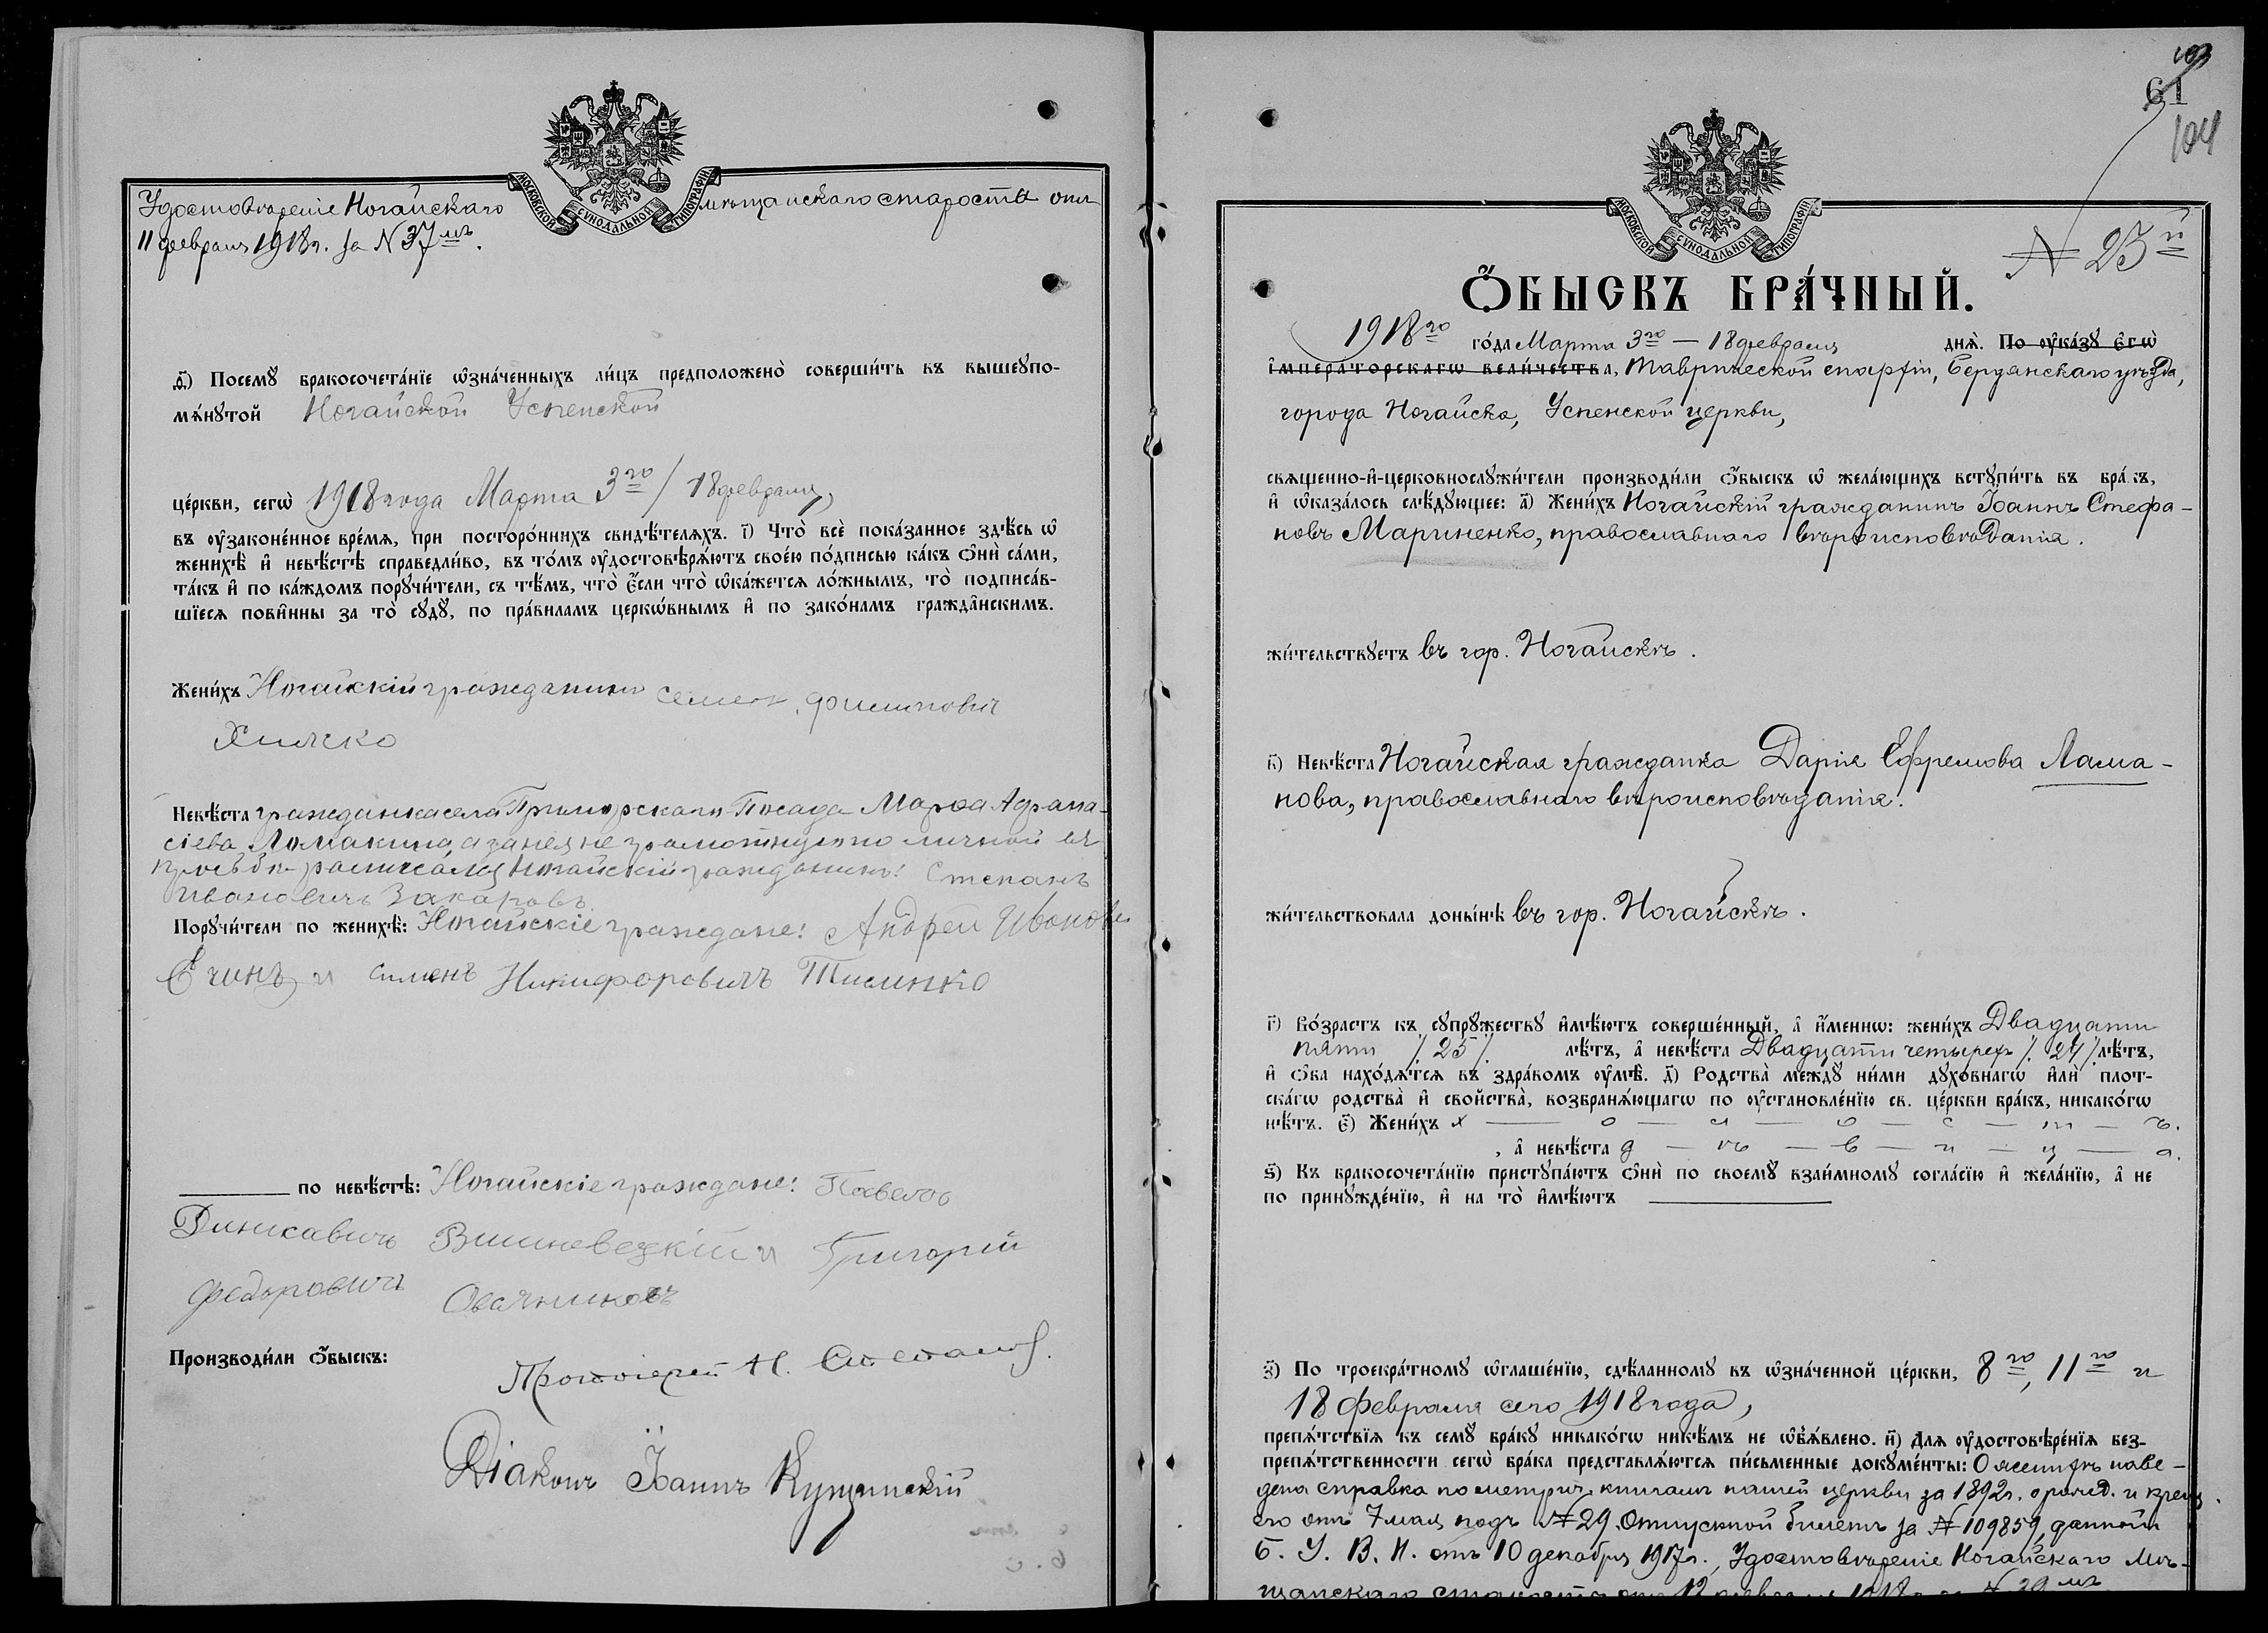 МОСКОВСКОЙ СѴНОДАЛЬНОЙ ТИПОГРАФІИ
Удостовѣреніе Ногайскаго мѣщанскаго старосты отъ
11 февраля 1918г. за N 37мъ.
д҃) Посемꙋ̀ бракосочета́нїе ѡ҆зна́ченныхъ ли́цъ предположено̀ соверши́ть въ вышеꙋпо-
мѧ́нꙋтой Ногайской Успенской
це́ркви, сегѡ̀ 1918 года Марта 3го / 18 февраля,
въ оу҆законе́нное вре́мѧ, при посторо́ннихъ свидѣ́телѧхъ. і҃) Что̀ всѐ пока́занное здѣ́сь ѡ҆
женихѣ̀ и҆ невѣ́стѣ справедли́во, въ то́мъ оу҆достовѣрѧ́ютъ свое́ю по́дписью ка́къ ѻ҆нѝ са́ми,
та́къ и҆ по ка́ждомъ порꙋчи́тели, съ тѣ́мъ, что̀ є҆́сли что̀ ѡ҆ка́жетсѧ ло́жнымъ, то̀ подписа́в-
шїесѧ пови́нны за то̀ сꙋдꙋ̀, по пра́виламъ церко́внымъ и҆ по зако́намъ гражда́нскимъ.
Жени́хъ Ногайскій гражданинъ Семен Филипович
Хилско
Невѣ́ста гражданка села Приморскаго Посада Марѳа Афана-
сіева Ломакина, а за нея не грамотную по личной ея
просьбѣ расписался Ногайскій гражданинъ: Степанъ
Ивановичъ Захаровъ
Порꙋчи́тели по женихѣ̀: Ногайскіе граждане: Андрей Иванови
и Сименъ Никифоровичъ Тисинко
по невѣ́стѣ: Ногайскіе граждане: Павелъ
Вишневецкій и Григорій
Федоровичъ Овсяниковъ
Производи́ли ѻ҆́быскъ:
Протоіерей Н. Степанов
Діаконъ Іоаннъ Кущинскій
103
61
104
МОСКОВСКОЙ СѴНОДАЛЬНОЙ ТИПОГРАФІИ
N 25й
Ѻ҆́БЫСКЪ БРА́ЧНЫЙ.
1918го го́да Марта 3го — 18 февраля днѧ̀. По оу҆ка́зꙋ є҆гѡ̀
и҆мпера́торскагѡ вели́чества, Таврической епархіи, Бердянскаго уѣзда,
города Ногайска, Успенской церкви,
свѧще́нно-и҆-церковнослꙋжи́тели производи́ли ѻ҆́быскъ ѡ҆ жела́ющихъ встꙋпи́ть въ бра́къ,
и҆ ѡ҆каза́лось слѣ́дꙋющее: а҃) Жени́хъ Ногайскій гражданинъ Іоаннъ Стефа-
новъ Мариненко, православнаго вѣроисповѣданія.
жи́тельствꙋетъ въ гор. Ногайскѣ.
в҃) Невѣ́ста Ногайская гражданка Дарія Ефремова Лама-
нова, православнаго вѣроисповѣданія.
жи́тельствовала доны́нѣ въ гор. Ногайскѣ.
г҃) Во́зрастъ къ сꙋпрꙋ́жествꙋ и҆мѣ́ютъ соверше́нный, а҆ и҆́меннѡ: жени́хъ Двадцати
пяти /.25/. лѣ́тъ, а҆ невѣ́ста Двадцати четырехъ /.24/. лѣ́тъ,
и҆ ѻ҆́ба нахо́дѧтсѧ въ здра́вомъ оу҆мѣ̀. д҃) Родства̀ междꙋ̀ ни́ми дꙋхо́внагѡ и҆лѝ плот-
ска́гѡ родства̀ и҆ сво́йства̀, возбранѧ́ющагѡ по оу҆становле́нїю св. це́ркви бра́къ, никако́гѡ
нѣ́тъ. є҃) Жени́хъ х — о — л — о — с — т — ъ.
, а҆ невѣ́ста д — ѣ — в — и — ц — а.
ѕ҃) Къ бракосочета́нїю пристꙋпа́ютъ ѻ҆нѝ по своемꙋ̀ взаи́мномꙋ согла́сїю и҆ жела́нїю, а҆ не
по принꙋжде́нїю, и҆ на то̀ и҆мѣ́ютъ
з҃) По троекра́тномꙋ ѡ҆глаше́нїю, сдѣ́ланномꙋ въ ѡ҆зна́ченной це́ркви, 8го, 11го и
18 февраля сего 1918 года,
препѧ́тствїѧ къ семꙋ̀ бра́кꙋ никако́гѡ никѣ́мъ не ѡ҆б̾ѧ́влено. и҃) Для оу҆достовѣре́нїѧ без-
препѧ́тственности сегѡ̀ бра́ка представлѧ́ютсѧ пи́сьменные докꙋме́нты: О женихѣ наве-
дена справка по метрич. книгамъ нашей церкви за 1892г. о рожд. и крещ.
его отъ 7 мая подъ № 29. Отпускной билетъ за № 109859, данный
Б. У. В. Н. отъ 10 декабря 1917г., Удостовѣреніе Ногайскаго Мѣ-
щанскаго старосты отъ 12 февраля 1918г. за N 29мъ